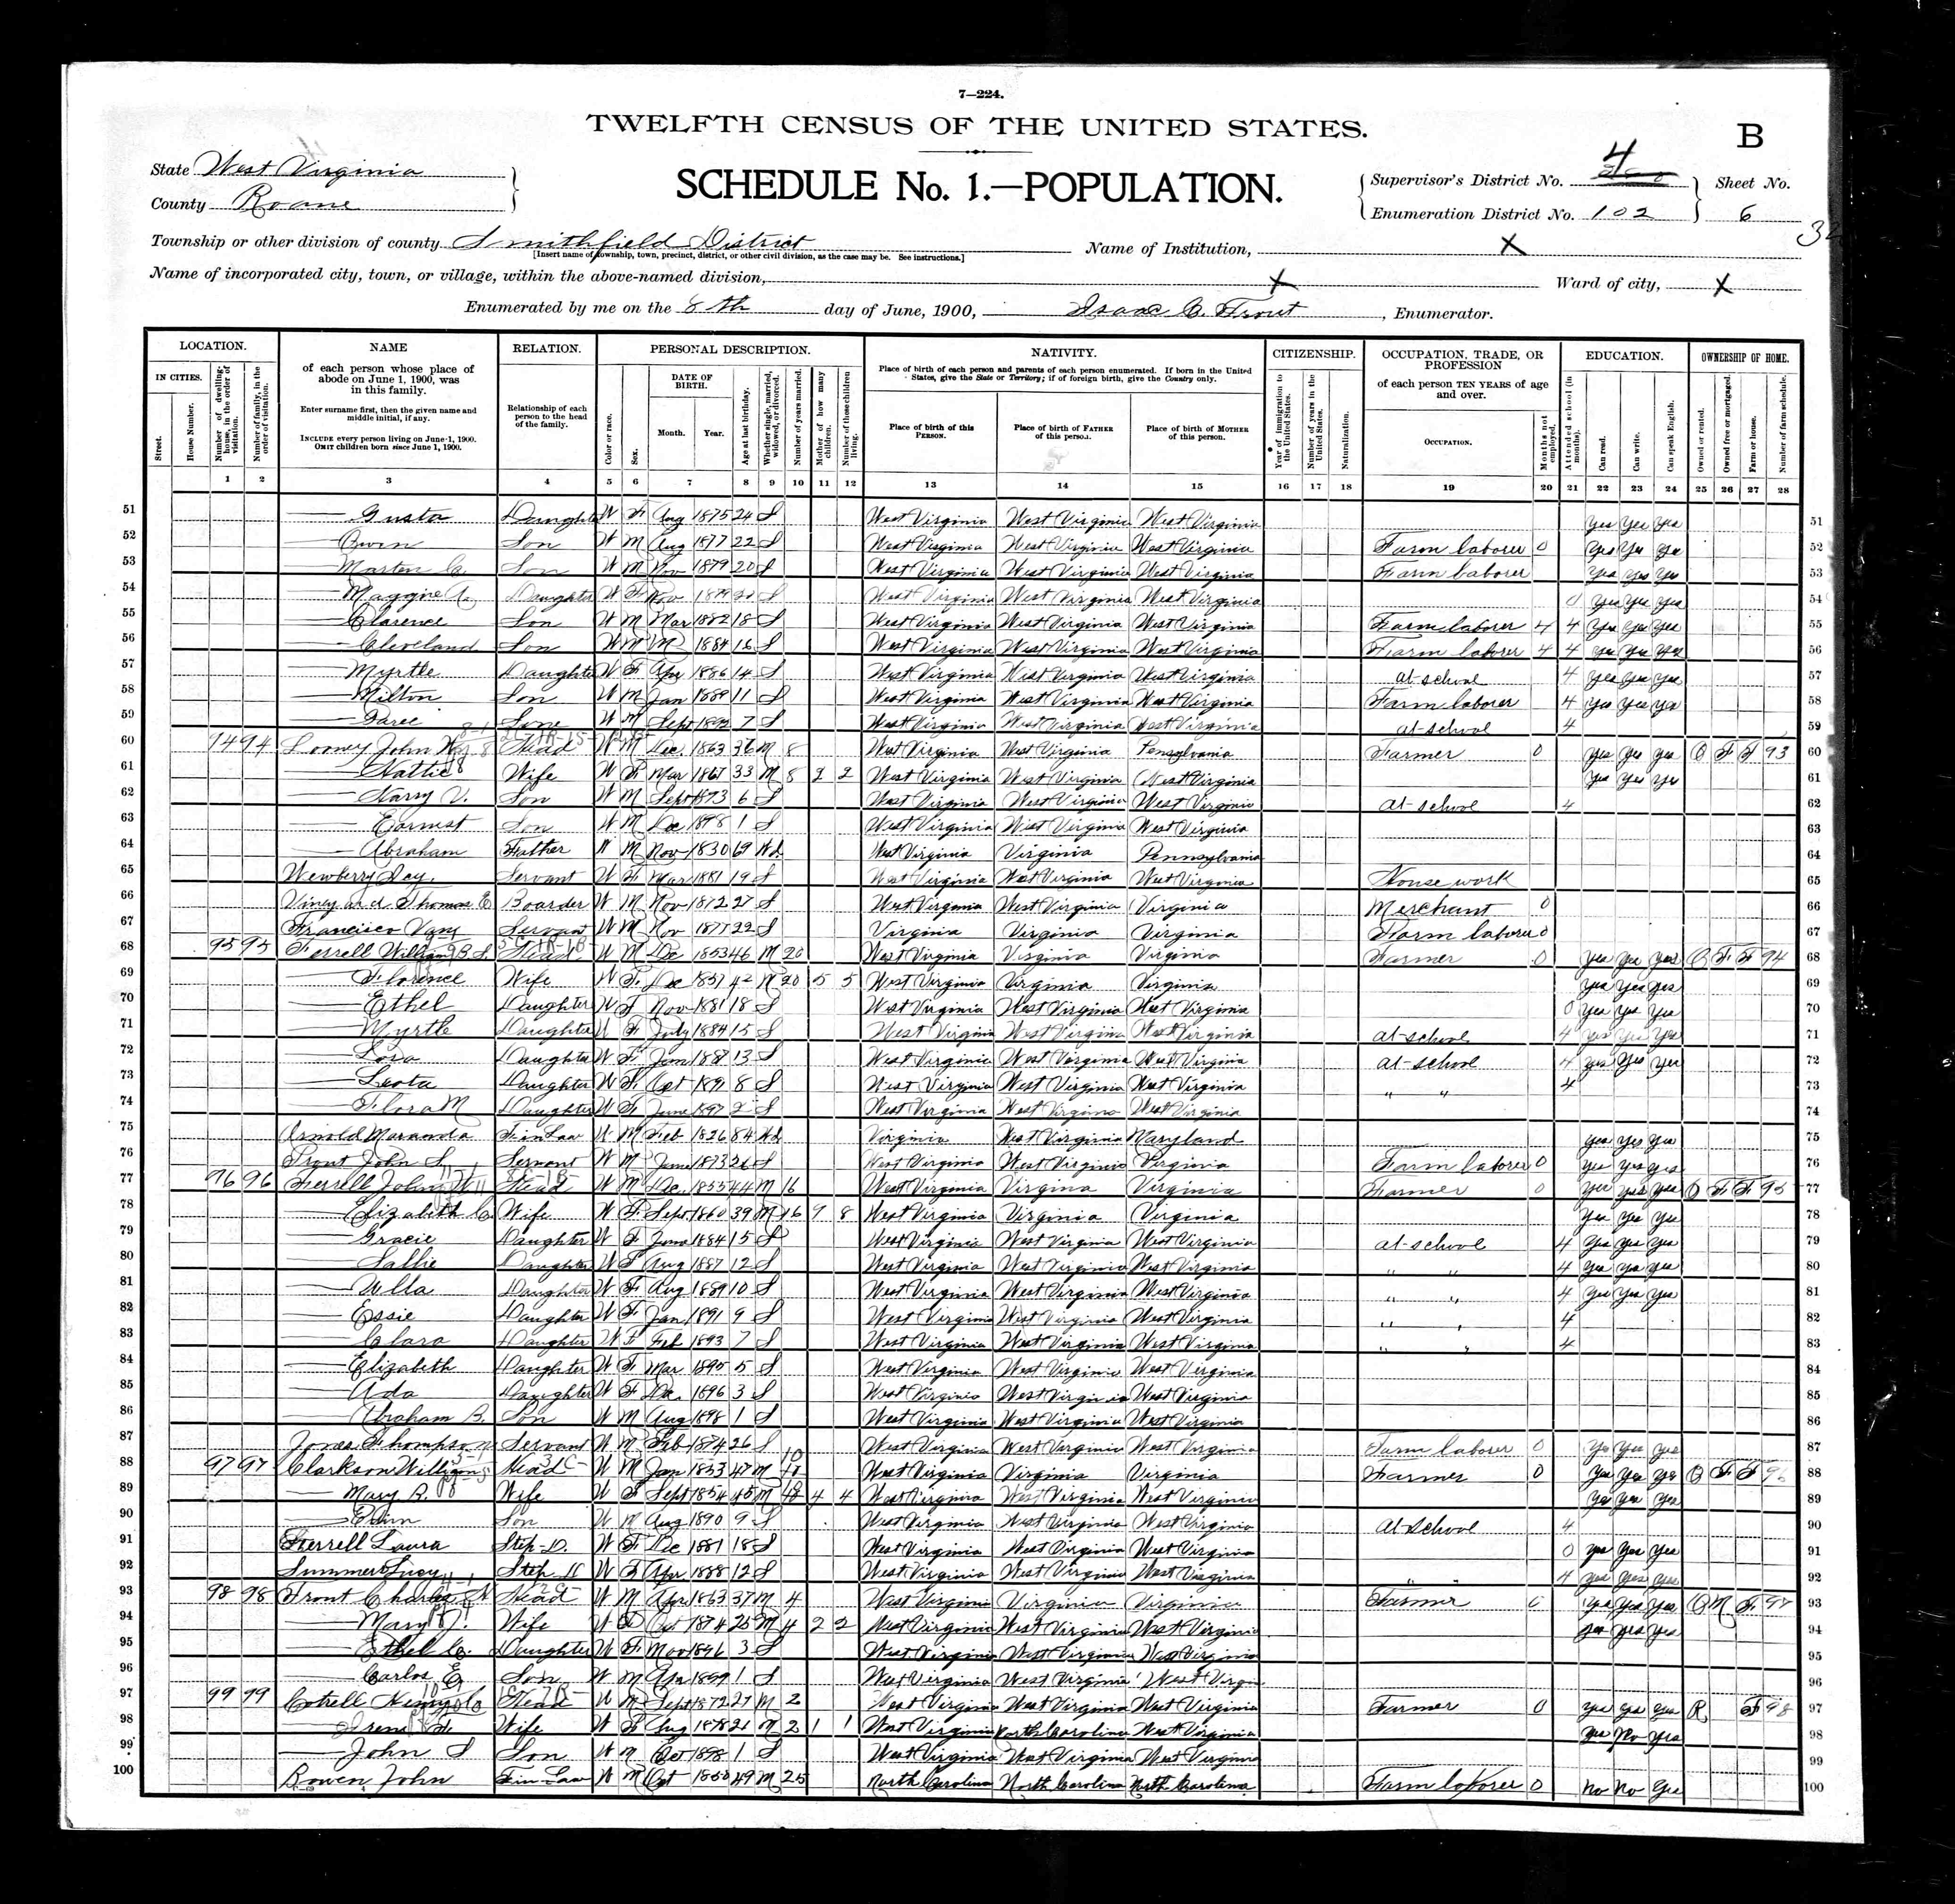 7—224.
TWELFTH CENSUS OF THE UNITED STATES.
B
State West Virginia
County Roane
SCHEDULE No. 1.—POPULATION.
Supervisor's District No. 4
Enumeration District No. 102
Sheet No. 6
Township or other division of county Smithfield District
[Insert name of township, town, precinct, district, or other civil division, as the case may be. See instructions.]
Name of Institution, X
Name of incorporated city, town, or village, within the above-named division, X
Ward of city, X
Enumerated by me on the 8th day of June, 1900, Isaac C. Trout, Enumerator.
LOCATION. NAME RELATION. PERSONAL DESCRIPTION. NATIVITY. CITIZENSHIP. OCCUPATION, TRADE, OR PROFESSION EDUCATION. OWNERSHIP OF HOME.
IN CITIES. Street. House Number. Number of dwelling-house, in the order of visitation. Number of family, in the order of visitation.
of each person whose place of abode on June 1, 1900, was in this family.
Enter surname first, then the given name and middle initial, if any.
INCLUDE every person living on June 1, 1900. OMIT children born since June 1, 1900.
Relationship of each person to the head of the family.
Color or race. Sex. DATE OF BIRTH. Month. Year. Age at last birthday. Whether single, married, widowed, or divorced. Number of years married. Mother of how many children. Number of these children living.
Place of birth of each person and parents of each person enumerated. If born in the United States, give the State or Territory; if of foreign birth, give the Country only.
Place of birth of this PERSON. Place of birth of FATHER of this person. Place of birth of MOTHER of this person.
Year of immigration to the United States. Number of years in the United States. Naturalization.
of each person TEN YEARS of age and over. OCCUPATION. Months not employed.
Attended school (in months). Can read. Can write. Can speak English.
Owned or rented. Owned free or mortgaged. Farm or house. Number of farm schedule.
1 2 3 4 5 6 7 8 9 10 11 12 13 14 15 16 17 18 19 20 21 22 23 24 25 26 27 28
51 Gusta Daughter W F Aug 1875 24 S West Virginia West Virginia West Virginia Yes Yes Yes 51
52 Son W M Aug 1877 22 S West Virginia West Virginia West Virginia Farm laborer 0 Yes Yes Yes 52
53 Marten C. Son W M Nov 1879 20 S West Virginia West Virginia West Virginia Farm laborer Yes Yes Yes 53
54 Maggie A. Daughter W F Nov 1879 20 S West Virginia West Virginia West Virginia 0 Yes Yes Yes 54
55 Clarence Son W M Mar 1882 18 S West Virginia West Virginia West Virginia Farm laborer 4 4 Yes Yes Yes 55
56 Cleveland Son W M 1884 16 S West Virginia West Virginia West Virginia Farm laborer 4 4 Yes Yes Yes 56
57 Myrtle Daughter W F Apr 1886 14 S West Virginia West Virginia West Virginia at school 4 Yes Yes Yes 57
58 Milton Son W M Jan 11 S West Virginia West Virginia West Virginia Farm laborer 4 Yes Yes Yes 58
59 W M Sept 1892 7 S West Virginia West Virginia West Virginia at school 4 59
60 94 94 Looney John Head W M Dec. 1863 36 M 8 West Virginia West Virginia Pensylvania Farmer 0 Yes Yes Yes O F F 93 60
61 Hattie Wife W F Mar 1867 33 M 8 2 2 West Virginia West Virginia West Virginia Yes Yes Yes 61
62 Harry V. Son W M Sept 6 S West Virginia West Virginia West Virginia at school 4 62
63 Earnest Son W M Dec 1898 1 S West Virginia West Virginia West Virginia 63
64 Abraham Father W M Nov 1830 69 Wd. West Virginia Virginia Pennsylvania 64
65 Newberry Servant W F Mar 1881 19 S West Virginia West Virginia West Virginia House work 65
66 Vineyard Thomas E Boarder W M Nov 1872 27 S West Virginia West Virginia Virginia Merchant 0 66
67 Francisco Servant W M Nov 1877 22 S Virginia Virginia Virginia Farm laborer 0 67
68 95 95 Ferrell William Head W M Dec 1853 46 M 20 West Virginia Virginia Virginia Farmer 0 Yes Yes Yes O F F 94 68
69 Florence Wife W F Dec 1857 42 M 20 5 5 West Virginia Virginia Virginia Yes Yes Yes 69
70 Ethel Daughter W F Nov 1881 18 S West Virginia West Virginia West Virginia 0 Yes Yes Yes 70
71 Myrtle Daughter W F July 1884 15 S West Virginia West Virginia West Virginia at school 4 Yes Yes Yes 71
72 Lora Daughter W F 13 S West Virginia West Virginia West Virginia at school 4 Yes Yes Yes 72
73 Leota Daughter W F Oct 1891 8 S West Virginia West Virginia West Virginia " " 4 73
74 Flora M Daughter W F June 1897 2 S West Virginia West Virginia West Virginia 74
75 Arnold F in Law W M Feb 1826 84 Wd Virginia West Virginia Maryland Yes Yes Yes 75
76 Trout John S. Servant W M June 1873 26 S West Virginia West Virginia Virginia Farm laborer 0 Yes Yes Yes 76
77 96 96 Ferrell John Head W M Dec. 1855 44 M 16 West Virginia Virginia Virginia Farmer 0 Yes Yes Yes O F F 95 77
78 Elizabeth C Wife W F Sept 1860 39 M 16 9 8 West Virginia Virginia Virginia Yes Yes Yes 78
79 Gracie Daughter W F June 1884 15 S West Virginia West Virginia West Virginia at school 4 Yes Yes Yes 79
80 Sallie Daughter W F Aug 1887 12 S West Virginia West Virginia West Virginia " " 4 Yes Yes Yes 80
81 Daughter W F Aug 1889 10 S West Virginia West Virginia West Virginia " " 4 Yes Yes Yes 81
82 Essie Daughter W F Jan 1891 9 S West Virginia West Virginia West Virginia " " 4 82
83 Clara Daughter W F Feb 1893 7 S West Virginia West Virginia West Virginia " " 4 83
84 Elizabeth Daughter W F Mar 1895 5 S West Virginia West Virginia West Virginia 84
85 Ada Daughter W F Dec. 1896 3 S West Virginia West Virginia West Virginia 85
86 Abraham B. Son W M Aug 1898 1 S West Virginia West Virginia West Virginia 86
87 Jones Thompson Servant W M Feb 1874 26 S West Virginia West Virginia West Virginia Farm laborer 0 Yes Yes Yes 87
88 97 97 Clarkson William Head W M Jan 1853 47 M 10 West Virginia Virginia Virginia Farmer 0 Yes Yes Yes O F F 96 88
89 Mary B. Wife W F Sept 1854 45 M 4 4 West Virginia West Virginia West Virginia Yes Yes Yes 89
90 Son W M Aug 1890 9 S West Virginia West Virginia West Virginia at School 4 90
91 Ferrell Laura Step-D. W F Dec 1881 18 S West Virginia West Virginia West Virginia 0 Yes Yes Yes 91
92 Summers Lucy Step D W F Apr 1888 12 S West Virginia West Virginia West Virginia " " 4 Yes Yes Yes 92
93 98 98 Trout Charley Head W M Apr 1863 37 M 4 West Virginia Virginia Virginia Farmer Yes Yes Yes O M F 97 93
94 Mary J. Wife W F Oct 1874 25 M 4 2 2 West Virginia West Virginia West Virginia Yes Yes Yes 94
95 Ethel C. Daughter W F Nov 1896 3 S West Virginia West Virginia West Virginia 95
96 Carlos E Son W M Apr 1899 1 S West Virginia West Virginia West Virginia 96
97 99 99 Cotrell Head W M Sept 1872 27 M 2 West Virginia West Virginia West Virginia Farmer 0 Yes Yes Yes R F 98 97
98 Wife W F Aug 1878 21 M 2 1 1 West Virginia North Carolina West Virginia Yes No Yes 98
99 John S Son W M Oct 1898 1 S West Virginia West Virginia West Virginia 99
100 Bowen John F in Law W M Oct 1850 49 M 25 North Carolina North Carolina North Carolina Farm laborer 0 No No Yes 100